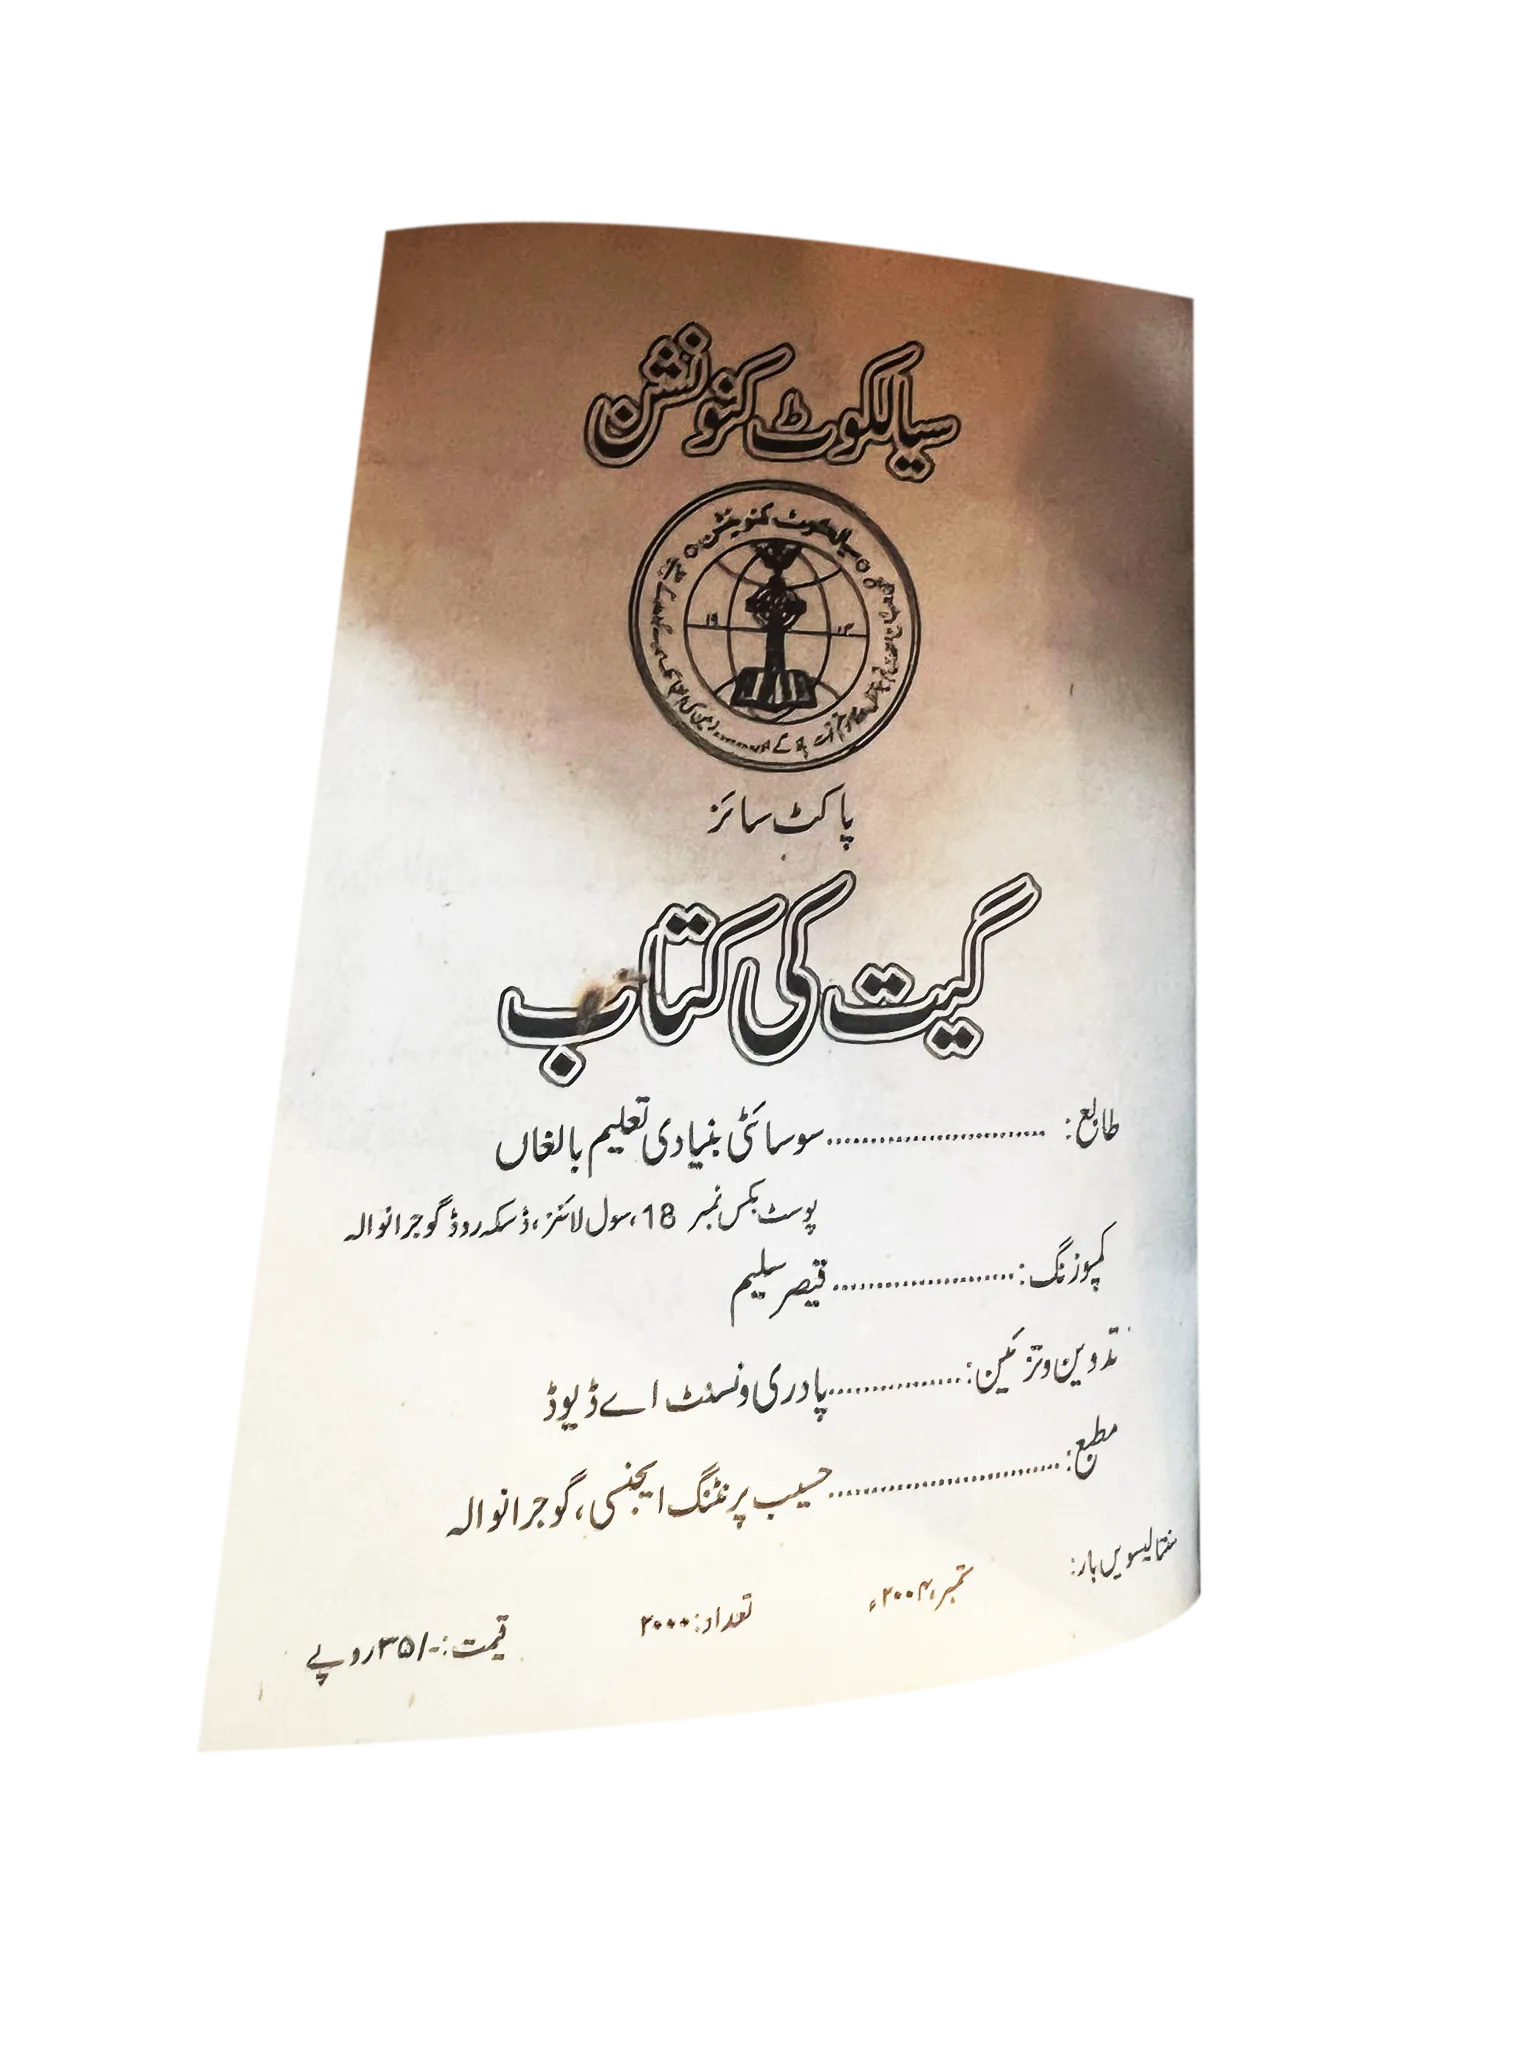 سیالکوٹ کنونشن
سیالکوٹ کنونشن
۱۹ ۰۴
پاکٹ سائز
گیت کی کتاب
طابع: ........................... سوسائٹی بنیادی تعلیم بالغاں
پوسٹ بکس نمبر 18، سول لائنز، ڈسکہ روڈ گوجرانوالہ
کمپوزنگ: ....................... قیصر سلیم
تدوین و تزئین: ................. پادری ونسنٹ اے ڈیوڈ
مطبع: ............................. حسیب پرنٹنگ ایجنسی، گوجرانوالہ
بار:
ستمبر ۲۰۰۴ء
تعداد: ۲۰۰۰
قیمت: -/۳۵ روپے